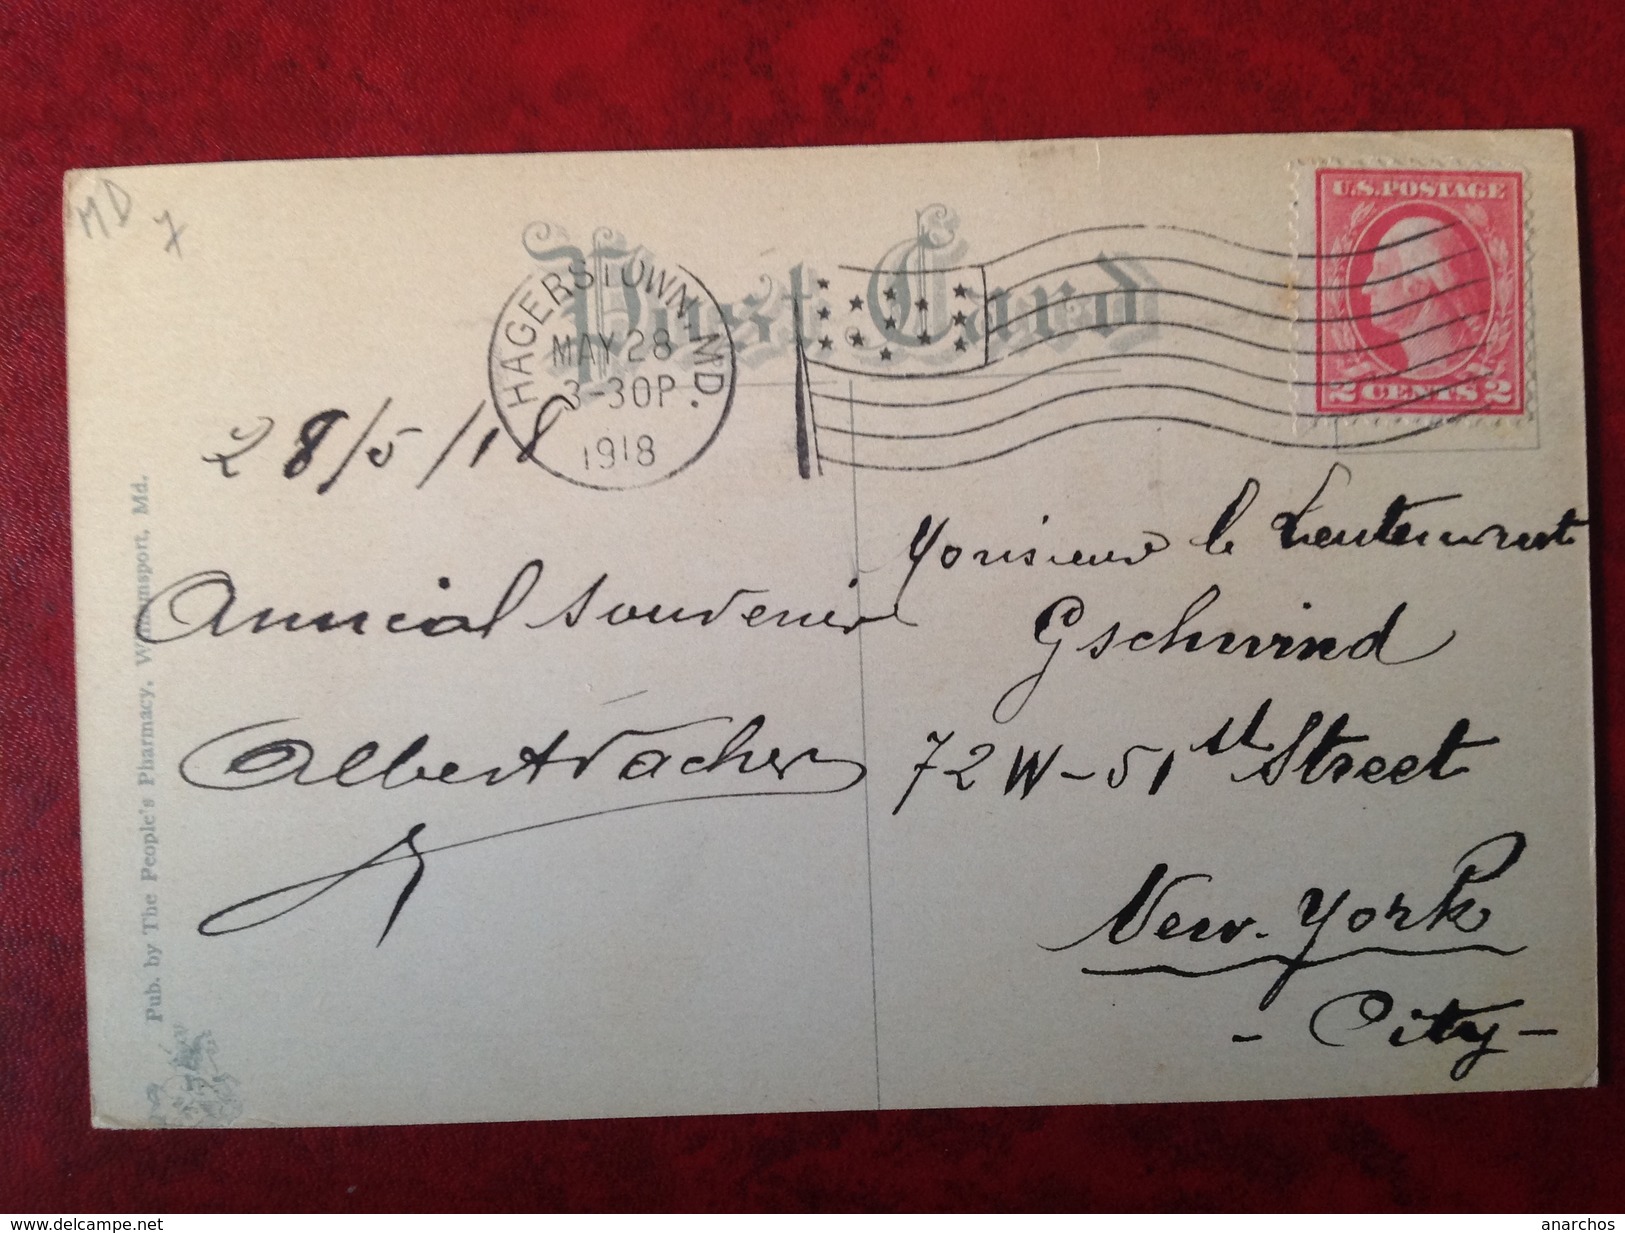 MD
7
Post Card
HAGERSTOWN, MD.
MAY 28
3-30P
1918
U.S. POSTAGE
2 CENTS 2
28/5/18
Amical souvenir
Albert Vacher
Monsieur le Lieutenant
Gschwind
72 W-51st Street
New-York
- City -
Pub. by The People's Pharmacy, Williamsport, Md.
www.delcampe.net
anarchos